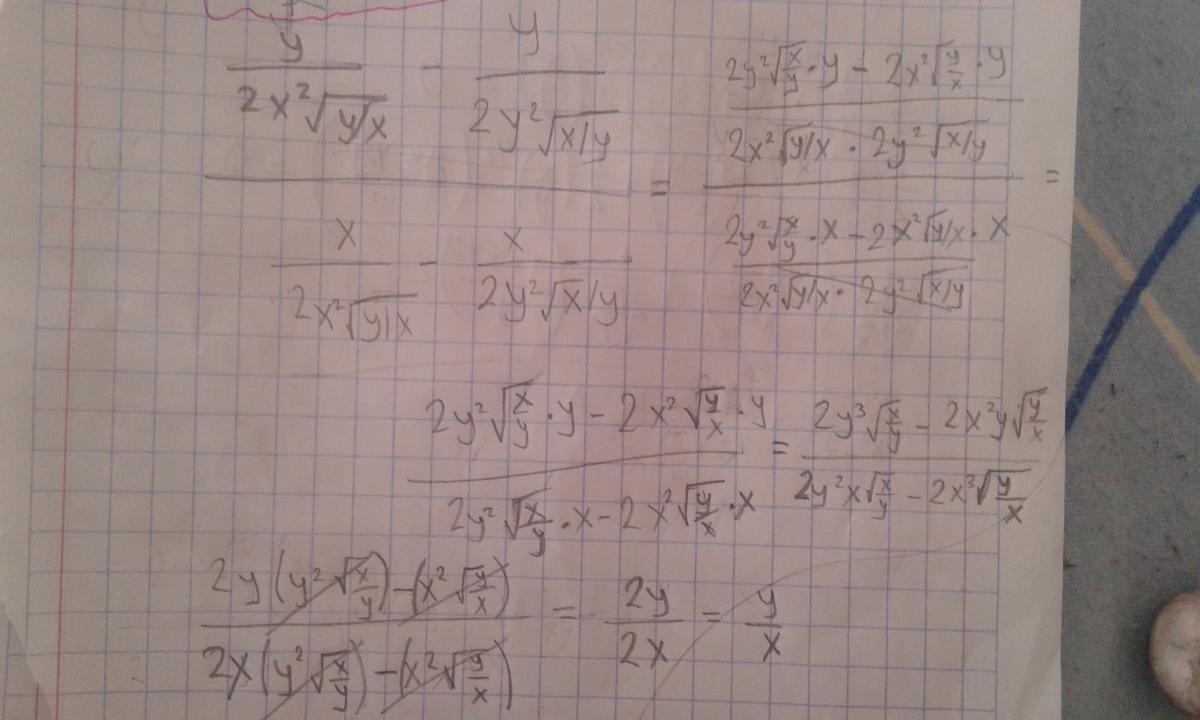 y/(2x²√(y/x)) - y/(2y²√(x/y))
x/(2x²√(y/x)) - x/(2y²√x/y)
=
2y²√(x/y)·y - 2x²√(y/x)·y
2x²√(y/x) · 2y²√(x/y)
2y²√(x/y)·x - 2x²√(y/x)·x
2x²√(y/x) · 2y²√(x/y)
=
2y²√(x/y)·y - 2x²√(y/x)·y
2y²√(x/y)·x - 2x²√(y/x)·x
=
2y³√(x/y) - 2x²y√(y/x)
2y²x√(x/y) - 2x³√(y/x)
2y(y²√(x/y)) - (x²√(y/x))
2x(y²√(x/y)) - (x²√(y/x))
= 2y/2x = y/x